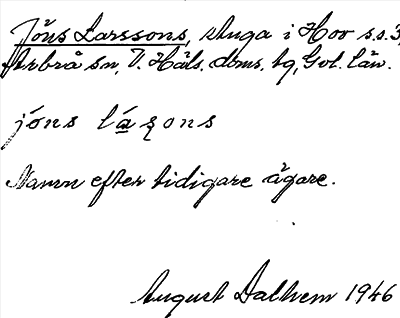 Jöns Larssons, stuga i Hov s.s.3,
Arbrå sn, V. Häls. doms. tg, Gvl. län.
jóns láʂons
Namn efter tidigare ägare.
August Dalhem 1946